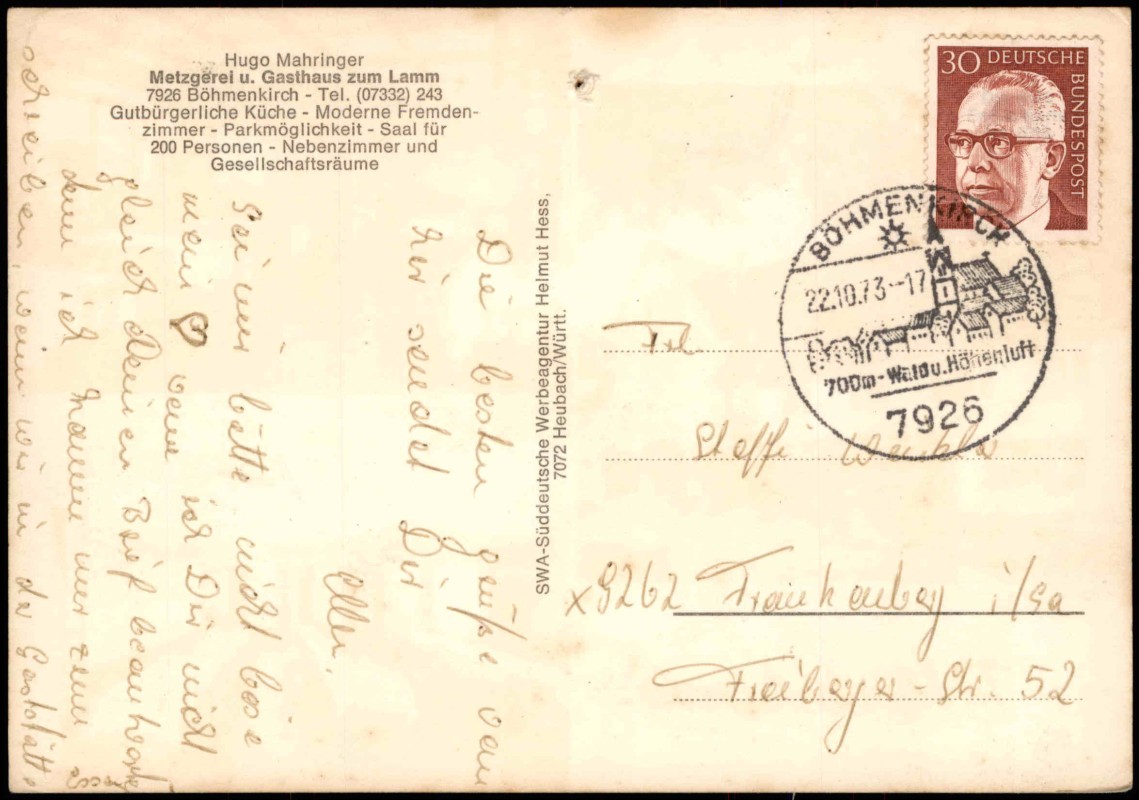 Hugo Mahringer
Metzgerei u. Gasthaus zum Lamm
7926 Böhmenkirch - Tel. (07332) 243
Gutbürgerliche Küche - Moderne Fremden-
zimmer - Parkmöglichkeit - Saal für
200 Personen - Nebenzimmer und
Gesellschaftsräume
Die besten Grüße von
hir sendet Dir
Ellen.
Sei mir bitte nicht böse
mein ♡ wenn ich Dir nicht
gleich Deinen Brief beantworte
denn ich komme nur zum
schreiben, wenn wir in der Gaststätte
SWA-Süddeutsche Werbeagentur Helmut Hess,
7072 Heubach/Württ.
30 DEUTSCHE
BUNDESPOST
BÖHMENKIRCH
22.10.73-17
700m-Wald u. Höhenluft
7926
Frl.
Steffi
x9262 Frankenberg i/Sa
Freiberger-Str. 52